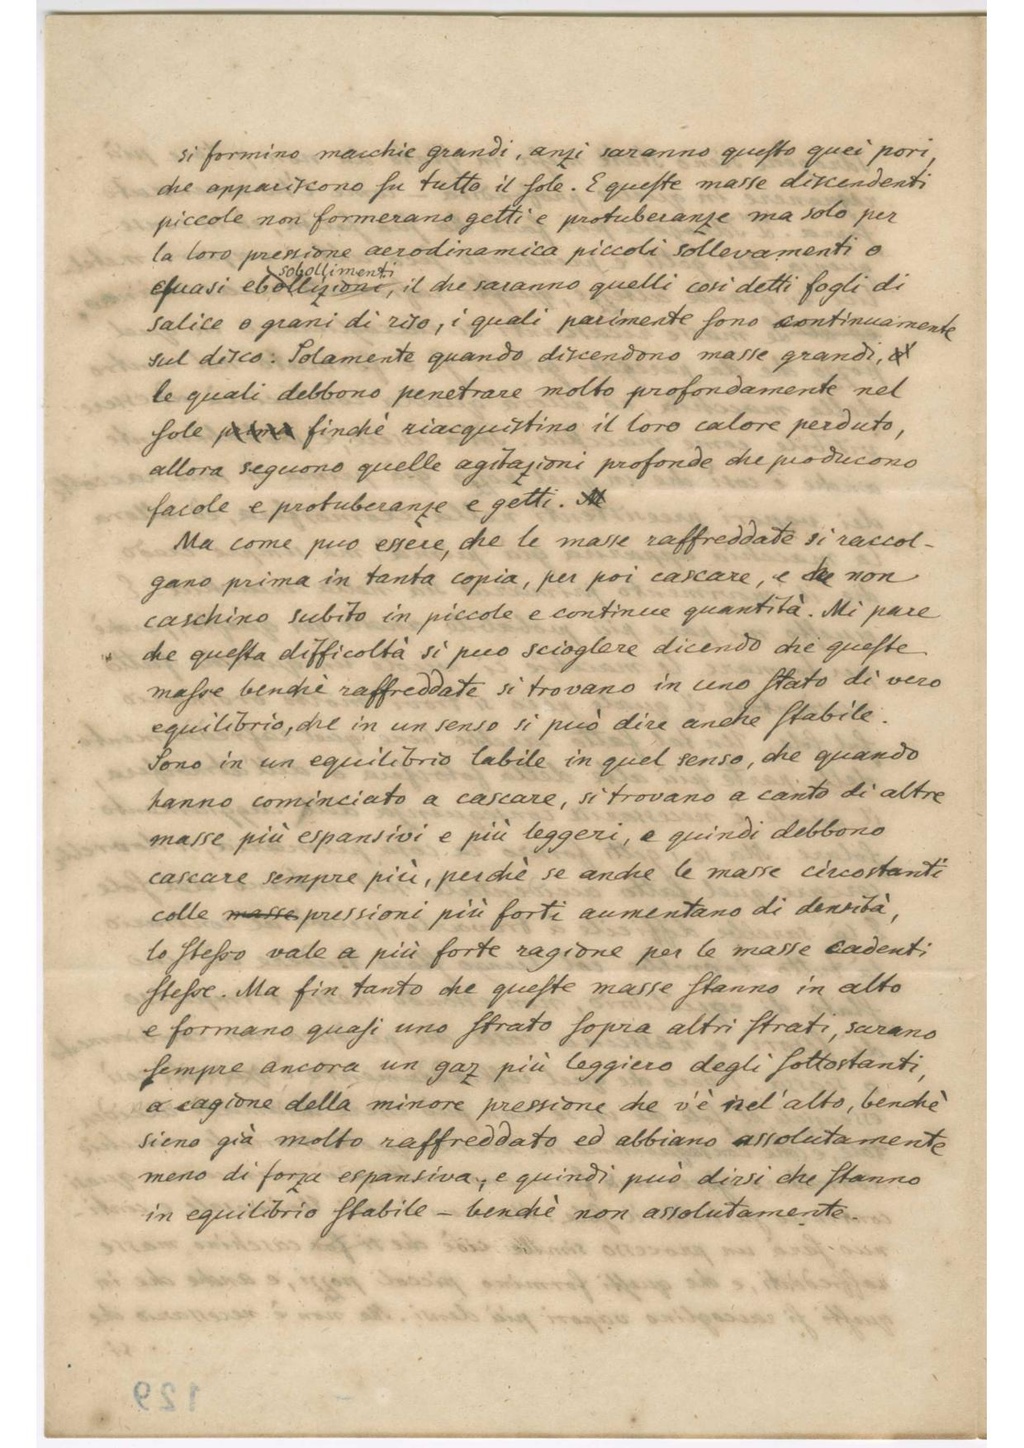 si formino macchie grandi, anzi saranno questo quei pori,
che appariscono su tutto il sole. E queste masse discendenti
piccole non formerano getti e protuberanze ma solo per
la loro pressione aerodinamica piccoli sollevamenti o
sobollimenti
quasi ebollizioni, il che saranno quelli cosi detti fogli di
salice o grani di riso, i quali parimente sono continuamente
sul disco. Solamente quando discendono masse grandi,
le quali debbono penetrare molto profondamente nel
sole prima finchè riacquistino il loro calore perduto,
allora seguono quelle agitazioni profonde che producono
facole e protuberanze e getti. M
Ma come puo essere, che le masse raffreddate si raccol-
gano prima in tanta copia, per poi cascare, e che non
caschino subito in piccole e continue quantità. Mi pare
che questa difficoltà si puo scioglere dicendo che queste
masse benchè raffreddate si trovano in uno stato di vero
equilibrio, che in un senso si può dire anche stabile.
Sono in un equilibrio labile in quel senso, che quando
hanno cominciato a cascare, si trovano a canto di altre
masse più espansivi e più leggeri, e quindi debbono
cascare sempre più, perchè se anche le masse circostanti
colle masse pressioni più forti aumentano di densità,
lo stesso vale a più forte ragione per le masse cadenti
stesse. Ma fin tanto che queste masse stanno in alto
e formano quasi uno strato sopra altri strati, sarano
sempre ancora un gaz più leggiero degli sottostanti,
a cagione della minore pressione che v'è nel'alto, benchè
sieno già molto raffreddato ed abbiano assolutamente
meno di forza espansiva, e quindi può dirsi che stanno
in equilibrio stabile – benchè non assolutamente.
129